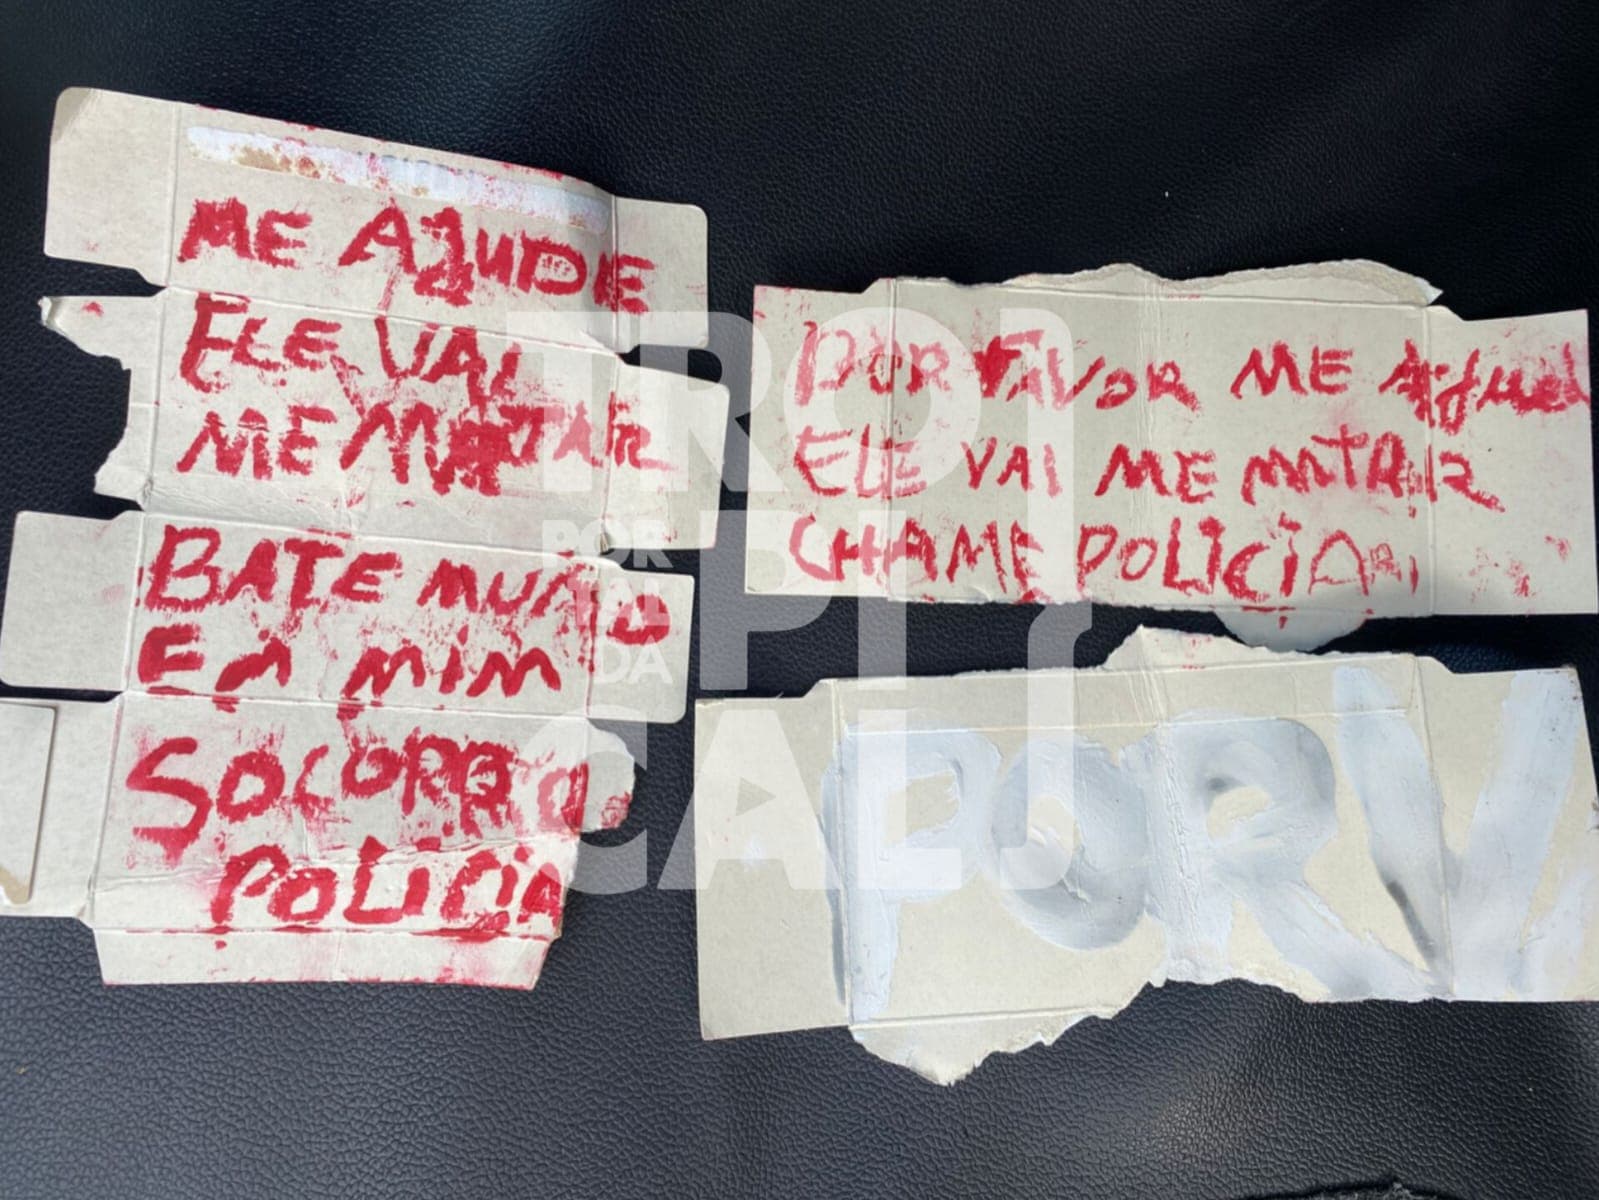 ME AJUDE
ELE VAI
ME MATAR
BATE MUITO
EM MIM
SOCORRO
POLICIA
POR FAVOR ME AJUD
ELE VAI ME MATAR
CHAME POLICIA
POR
TRO
PI
CAL
POR
TAL
DA